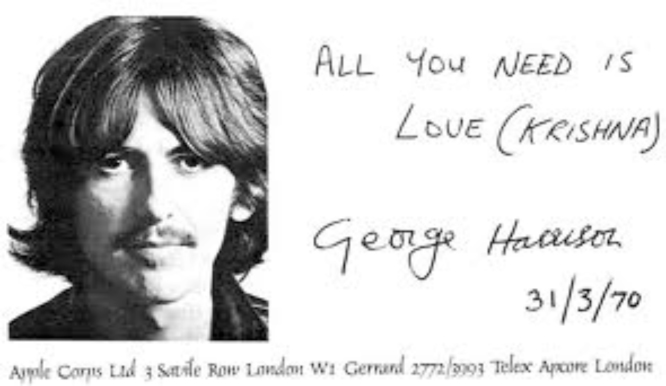 ALL YOU NEED IS
LOVE (KRISHNA)
George Harrison
31/3/70
Apple Corps Ltd 3 Savile Row London W1 Gerrard 2772/3993 Telex Apcore London